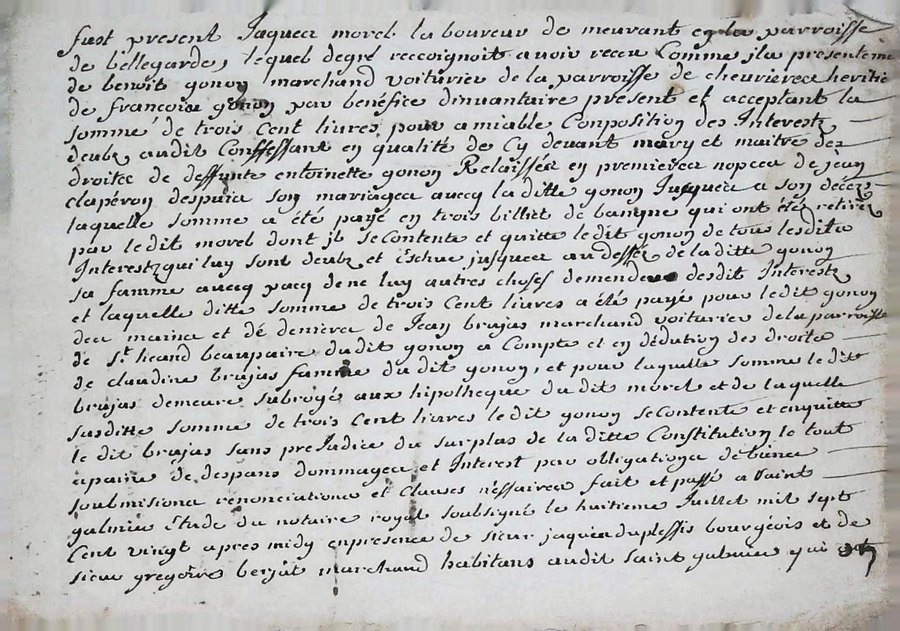 fust present Jaques morel laboureur de meurant en la parroisse
de bellegarde, lequel degré reccoignoit avoir receu Comme jla presenteme
de benoit gonon marchand voiturier de la parroisse de cheurieres heritie
de francois gonon par benéfice dinuantaire present et acceptant la
somme de trois Cent liures, pour amiable Composition des Interestz
deubz audit Confessant en qualité de Cy deuant mary et maitre des
droites de deffunte entoinette gonon Relaissée en premieres nopces de jean
claperon despuis son mariages auecq la ditte gonon Jusques a son décéz
laquelle somme a été payé en trois billiet de banque qui ont été retiréz
par le dit morel dont jl se Contente et quitte le dit gonon de tous lesdits
Interestz qui luy sont deubz et ischue jusques au desséz de la ditte gonon
sa famme auecq pacq de ne luy autres choses demender desdit Interestz
et laquelle ditte somme de trois Cent liures a été payé pour le dit gonon
des mains et dé deniers de Jean brujas marchand voiturier de la parroisse
de st. heand beaupaire dudit gonon a Compte et en dédution des droits
de claudine brujas famme du dit gonon, et pour laquelle somme le dit
brujas demeure subrogé aux hipotheque du dit morel et de laquelle
susditte somme de trois Cent liures le dit gonon se Contente et en quitte
le dit brujas sans prejudice du surplus de la ditte Constitution le tout
apaine de despans dommages et Interest par obligations de biens
soubmisions renonciations et Clauses néssaires fait et passé a Saint
galmier Etude du notaire royal soubsigné le huitieme Juillet mil sept
Cent vingt apres midy en presence de sieur jaques duplessis bourgeois et de
sieur gregoire berjat marchand habitans audit saint galmier qui ont